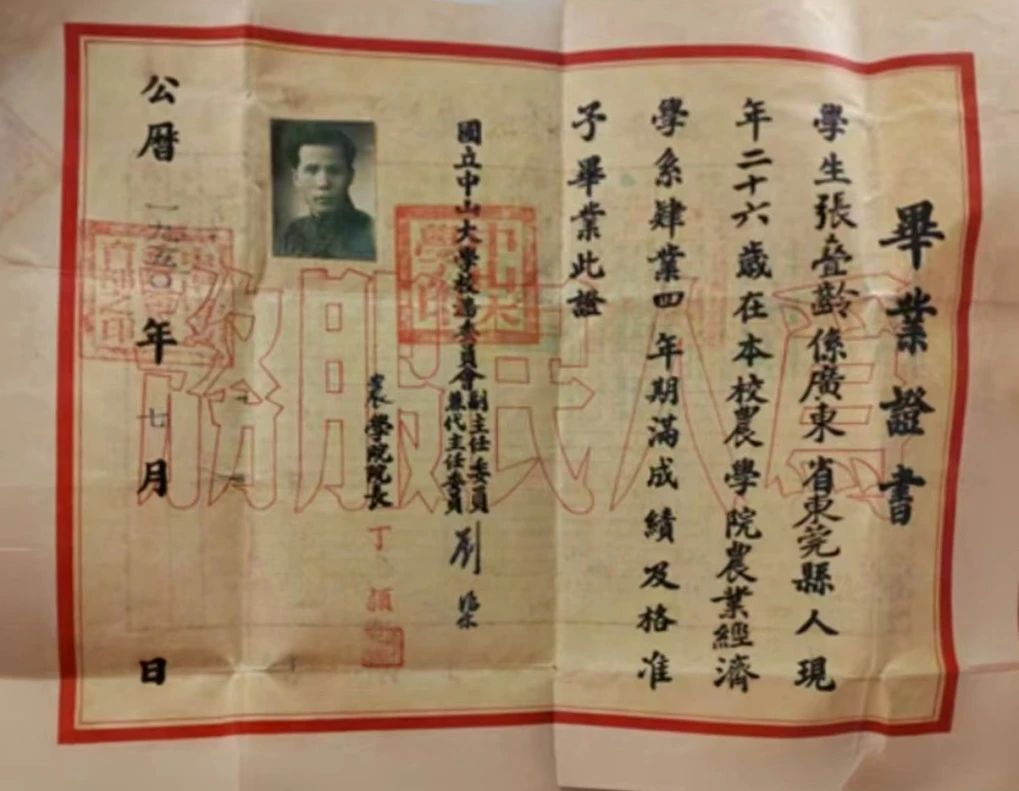 畢業證書
學生張叠齡係廣東省東莞縣人現
年二十六歲在本校農學院農業經濟
學系肄業四年期滿成績及格准
予畢業此證
國立中山大學校務委員會副主任委員兼代主任委員劉
農學院院長丁穎
公曆一九五〇年七月日
為人民服務